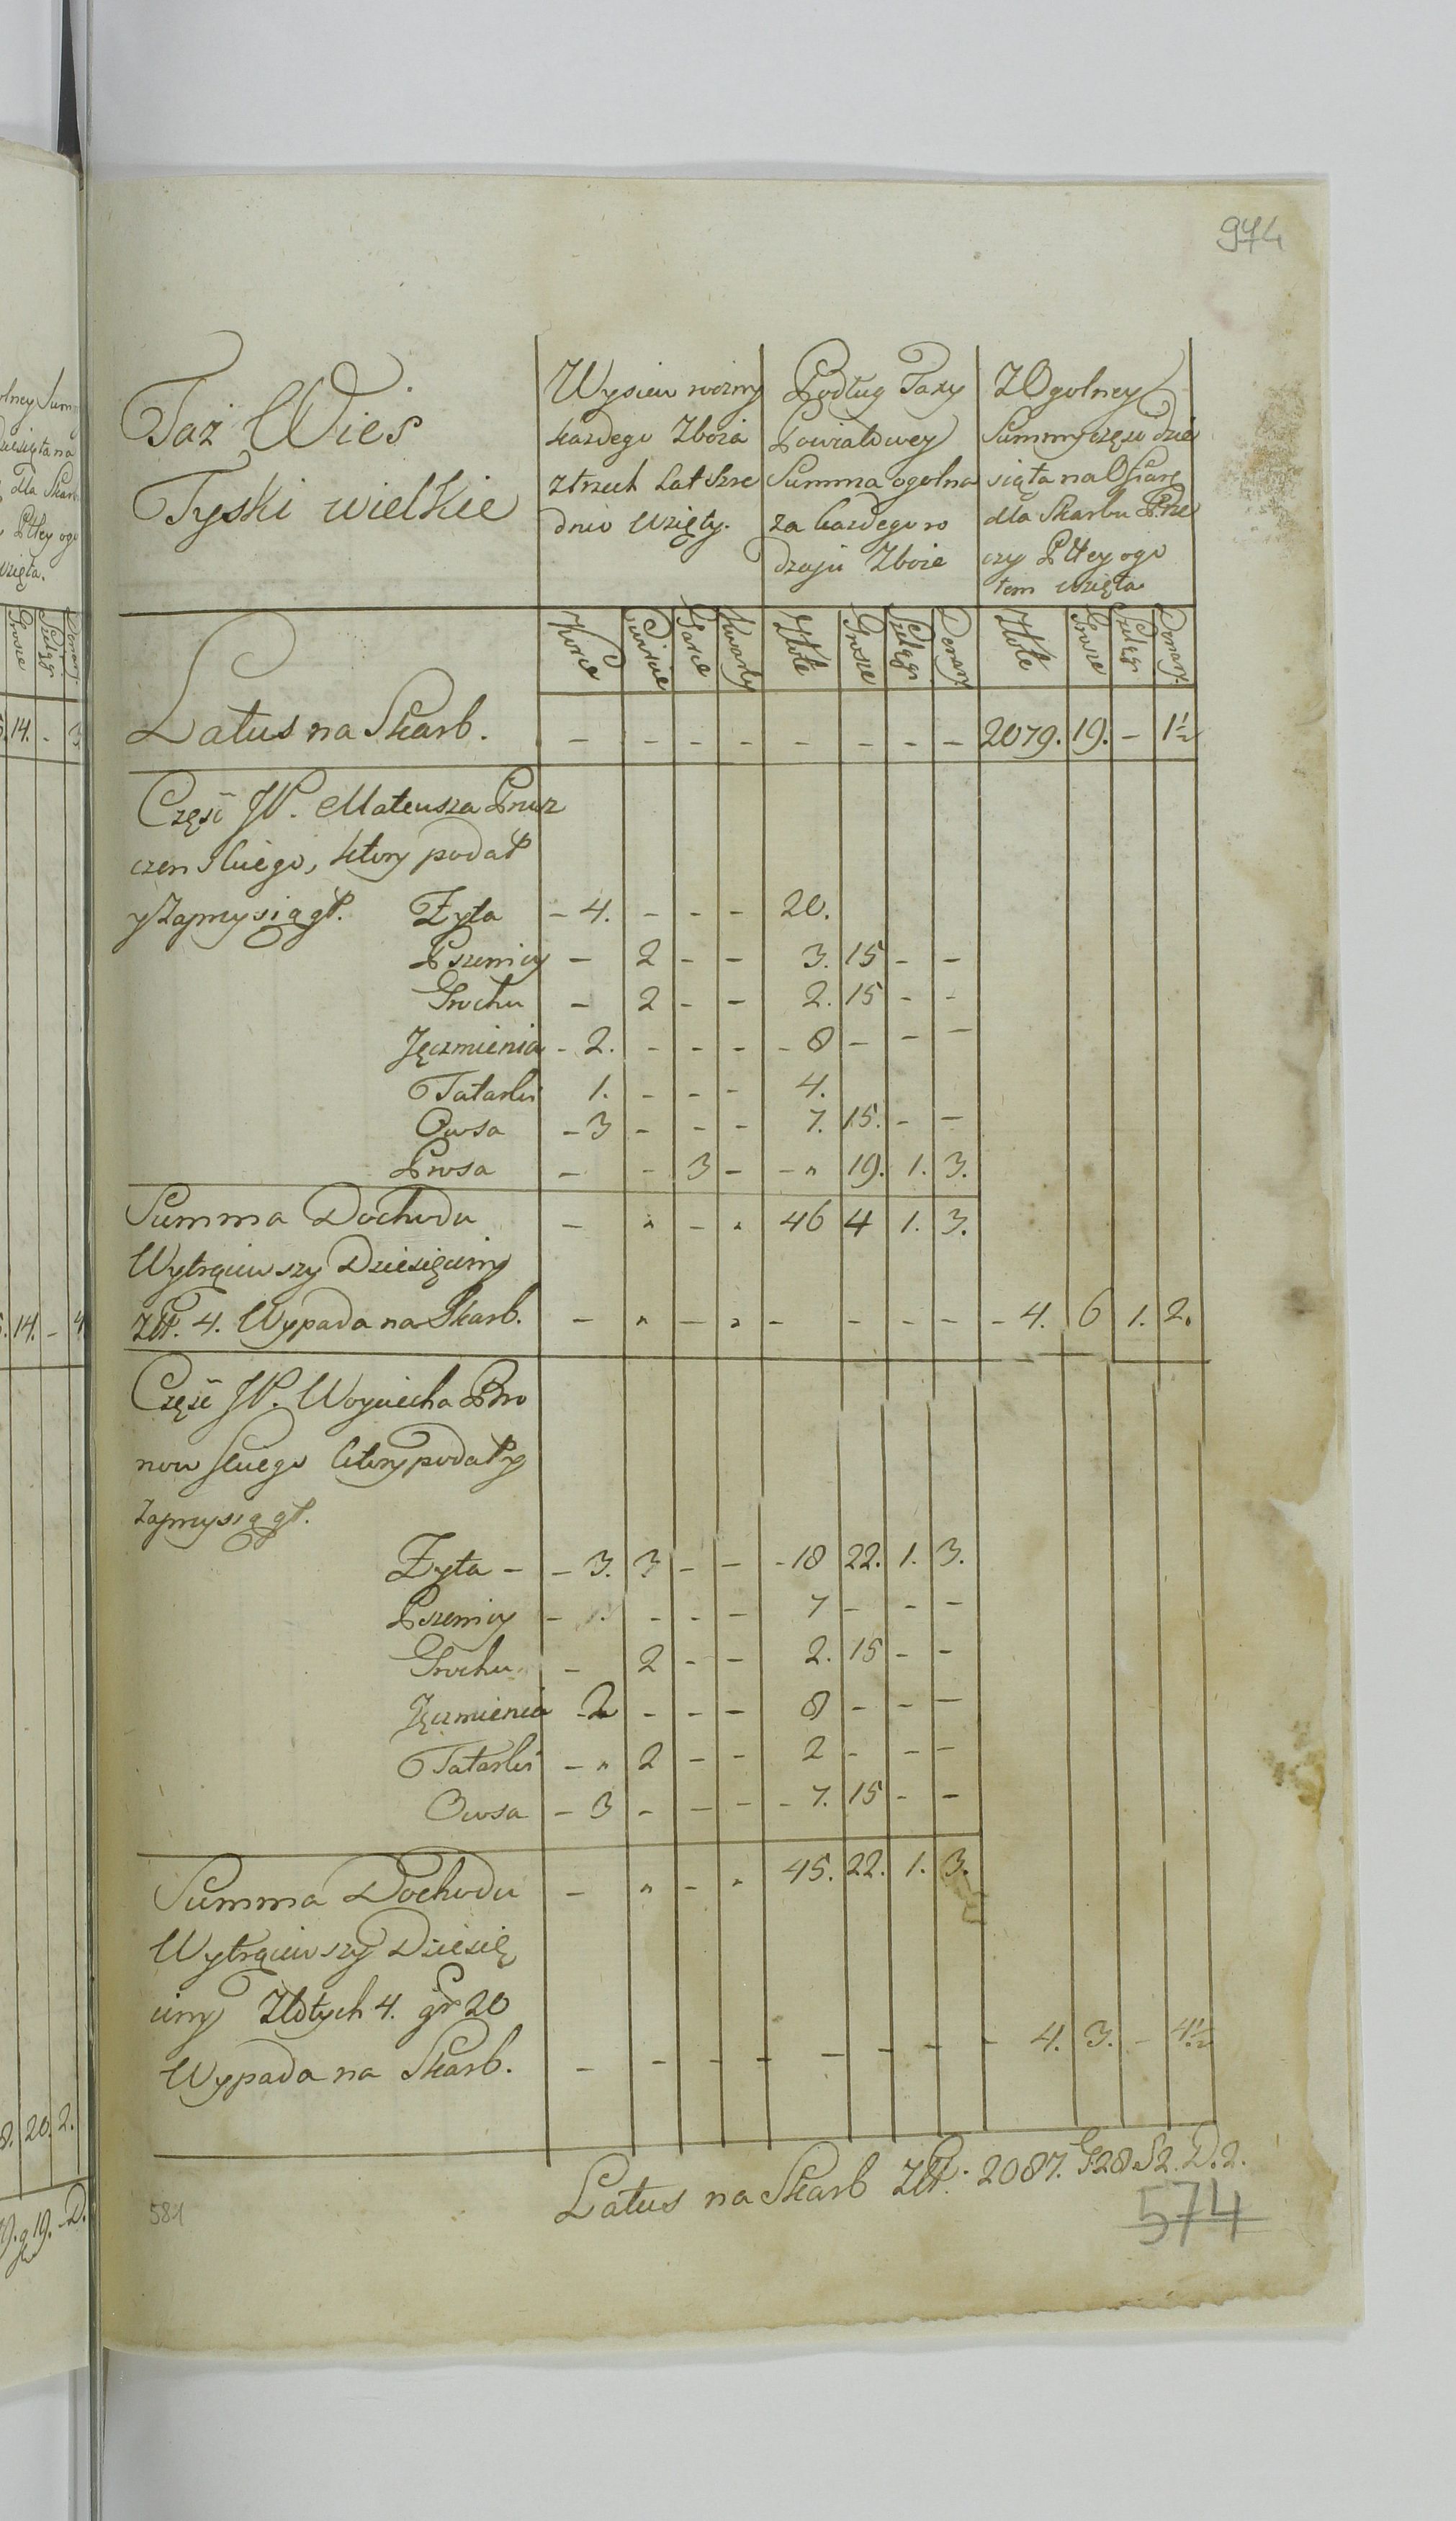 974
Taż Wies
Tyski wielkie
Wysiew roczny
każdego Zboża
z trzech Lat Szre
dnio wzięty.
Podług Taxy
Powiatowey
Summa ogolna
za każdego ro
dzaju Zboże
Z Ogolney
Summy częsc dzie
siąta na Ofiarę
dla Skarbu Rze
czy Pltey ogo
łem wzięta
Korce Cwircie Garce Kwarty Złote Grosze Szelągi Denary Złote Grosze Szelągi Denary
Latus na Skarb. - - - - - - - - 2079. 19. - 1½
Część JP. Mateusza Prusz
czenskiego, ktory podał
y Zaprzysiągł. Zyta - 4. - - - 20.
Pszenicy - 2 - - 3. 15 - -
Grochu - 2 - - 2. 15 - -
Jęczmienia - 2. - - - - 8 - - -
Tatarki 1. - - - 4.
Owsa - 3 - - - 7. 15. - -
Prosa - - 3 - - " 19. 1. 3.
Summa Dochodu - " - " 46 4 1. 3.
Wytrąciwszy Dziesięciny
Złt. 4. Wypada na Skarb. - " - " - - - - - 4. 6 1. 2.
Część JP. Woyciecha Bro
nowskiego ktory podał y
Zaprzysiągł.
Zyta - - 3. 3 - - - 18 22. 1. 3.
Pszenicy - 1. - - - 7 - - -
Grochu - 2 - - 2. 15 - -
Jęczmienia - 2 - - - 8 - - -
Tatarki - " 2 - - 2 - - -
Owsa - 3 - - - - 7. 15 - -
Summa Dochodu - " - " 45. 22. 1. 3.
Wytrąciwszy Dziesię
ciny Złotych 4. gr 20
Wypada na Skarb. - - - - - - - - 4. 3. - 4½
Latus na Skarb Złt: 2087. G 28 S 2. D. 2.
581
574